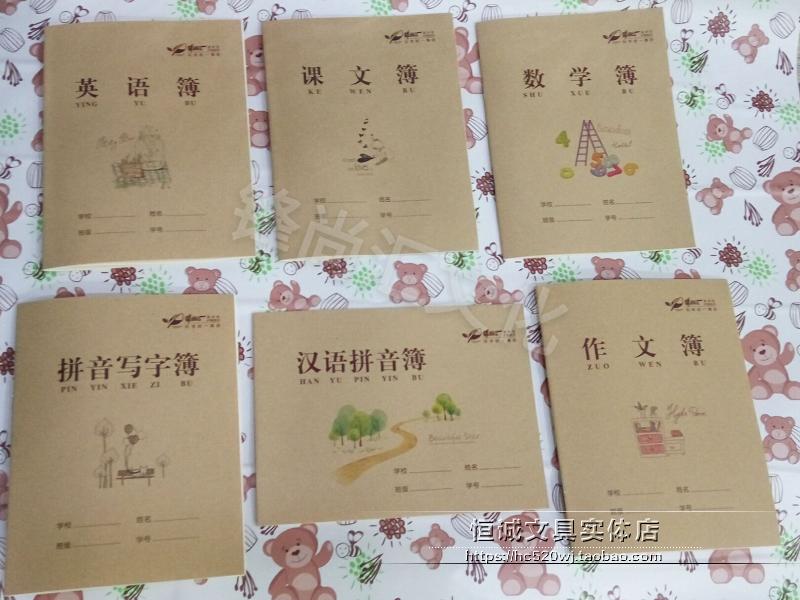 英语簿
YING YU BU
学校 姓名
班级 学号
课文簿
KE WEN BU
学校 姓名
班级 学号
数学簿
SHU XUE BU
4
学校 姓名
班级 学号
锋尚汇文化
拼音写字簿
PIN YIN XIE ZI BU
学校 姓名
班级 学号
汉语拼音簿
HAN YU PIN YIN BU
Beautiful Star
学校 姓名
班级 学号
作文簿
ZUO WEN BU
学校 姓名
班级 学号
恒诚文具实体店
https://hc520wj.taobao.com